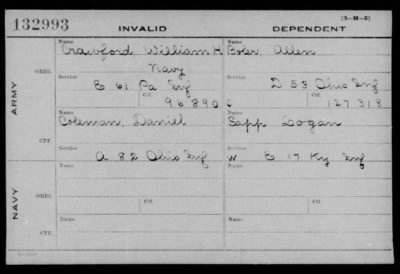 132993 INVALID DEPENDENT (3-H-5)
Name Name
Crawford, William H. Boler, Allen
Navy
ARMY ORIG. Service Service
E 61 Pa Inf D 53 Ohio Inf
Ctf. Ctf.
96890 C 127318
Name Name
Coleman, Daniel Sapp Logan
CTF. Service Service
A 82 Ohio Inf W E 17 Ky Inf
NAVY ORIG. Ctf. Ctf.
Name Name
CTF.